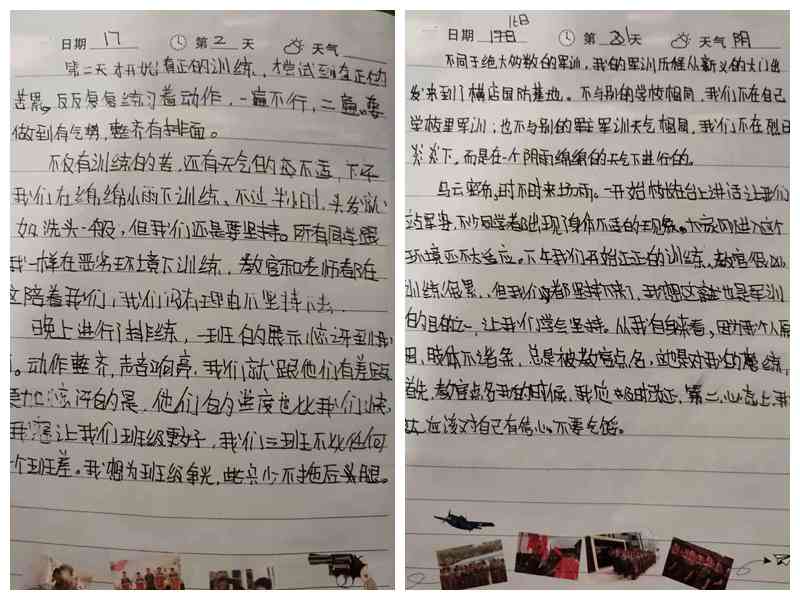 日期 17 第 2 天 天气
第二天才开始真正的训练，尝试到真正的
苦累。反反复复练习着动作，一遍不行，二遍。要
做到有气势，整齐有排面。
不仅有训练的苦，还有天气的不适，下午
我们在绵绵小雨下训练、不过半小时，头发就
如洗头一般，但我们还是要坚持。所有同学跟
我一样在恶劣环境下训练，教官和老师都在
陪着我们，我们没有理由不坚持下去.
晚上进行了排练，一班的展示惊讶到我
。动作整齐，声音响亮，我们就跟他们有差距
更加 的是，他们的进度也比我们快
我想让我们班级更好，我们三班不比任何
个班差。我想为班级争光，至少不拖后头腿。
16日
日期 17日 第 1 天 天气 阴
不同于绝大的数的军训，我的军训历程从新义的大门出
发来到了横店国防基地。不与别的学校相同，我们不在自己
学校里军训；也不与别的军训天气相同，我们不在烈日
炎炎下，而是在一个阴雨绵绵的天气下进行的。
乌云密布，时不时来场雨。一开始校长在台上讲话让我们
站军姿，不少同学都出现了身体不适的现象。大家刚进入这个
环境还不太适应。下午我们开始正正的训练，教官很凶
训练很累，但我们都坚持下来了，我想这就也是军训
的目的之一，让我们学会坚持。从我自身来看，因为我个人原
因，肢体不协条，总是被教官点名，这也是对我的磨练，
首先，教官点名我的时候，我应 时改正，第二，心态上我
应该对自己有信心。不要气馁。